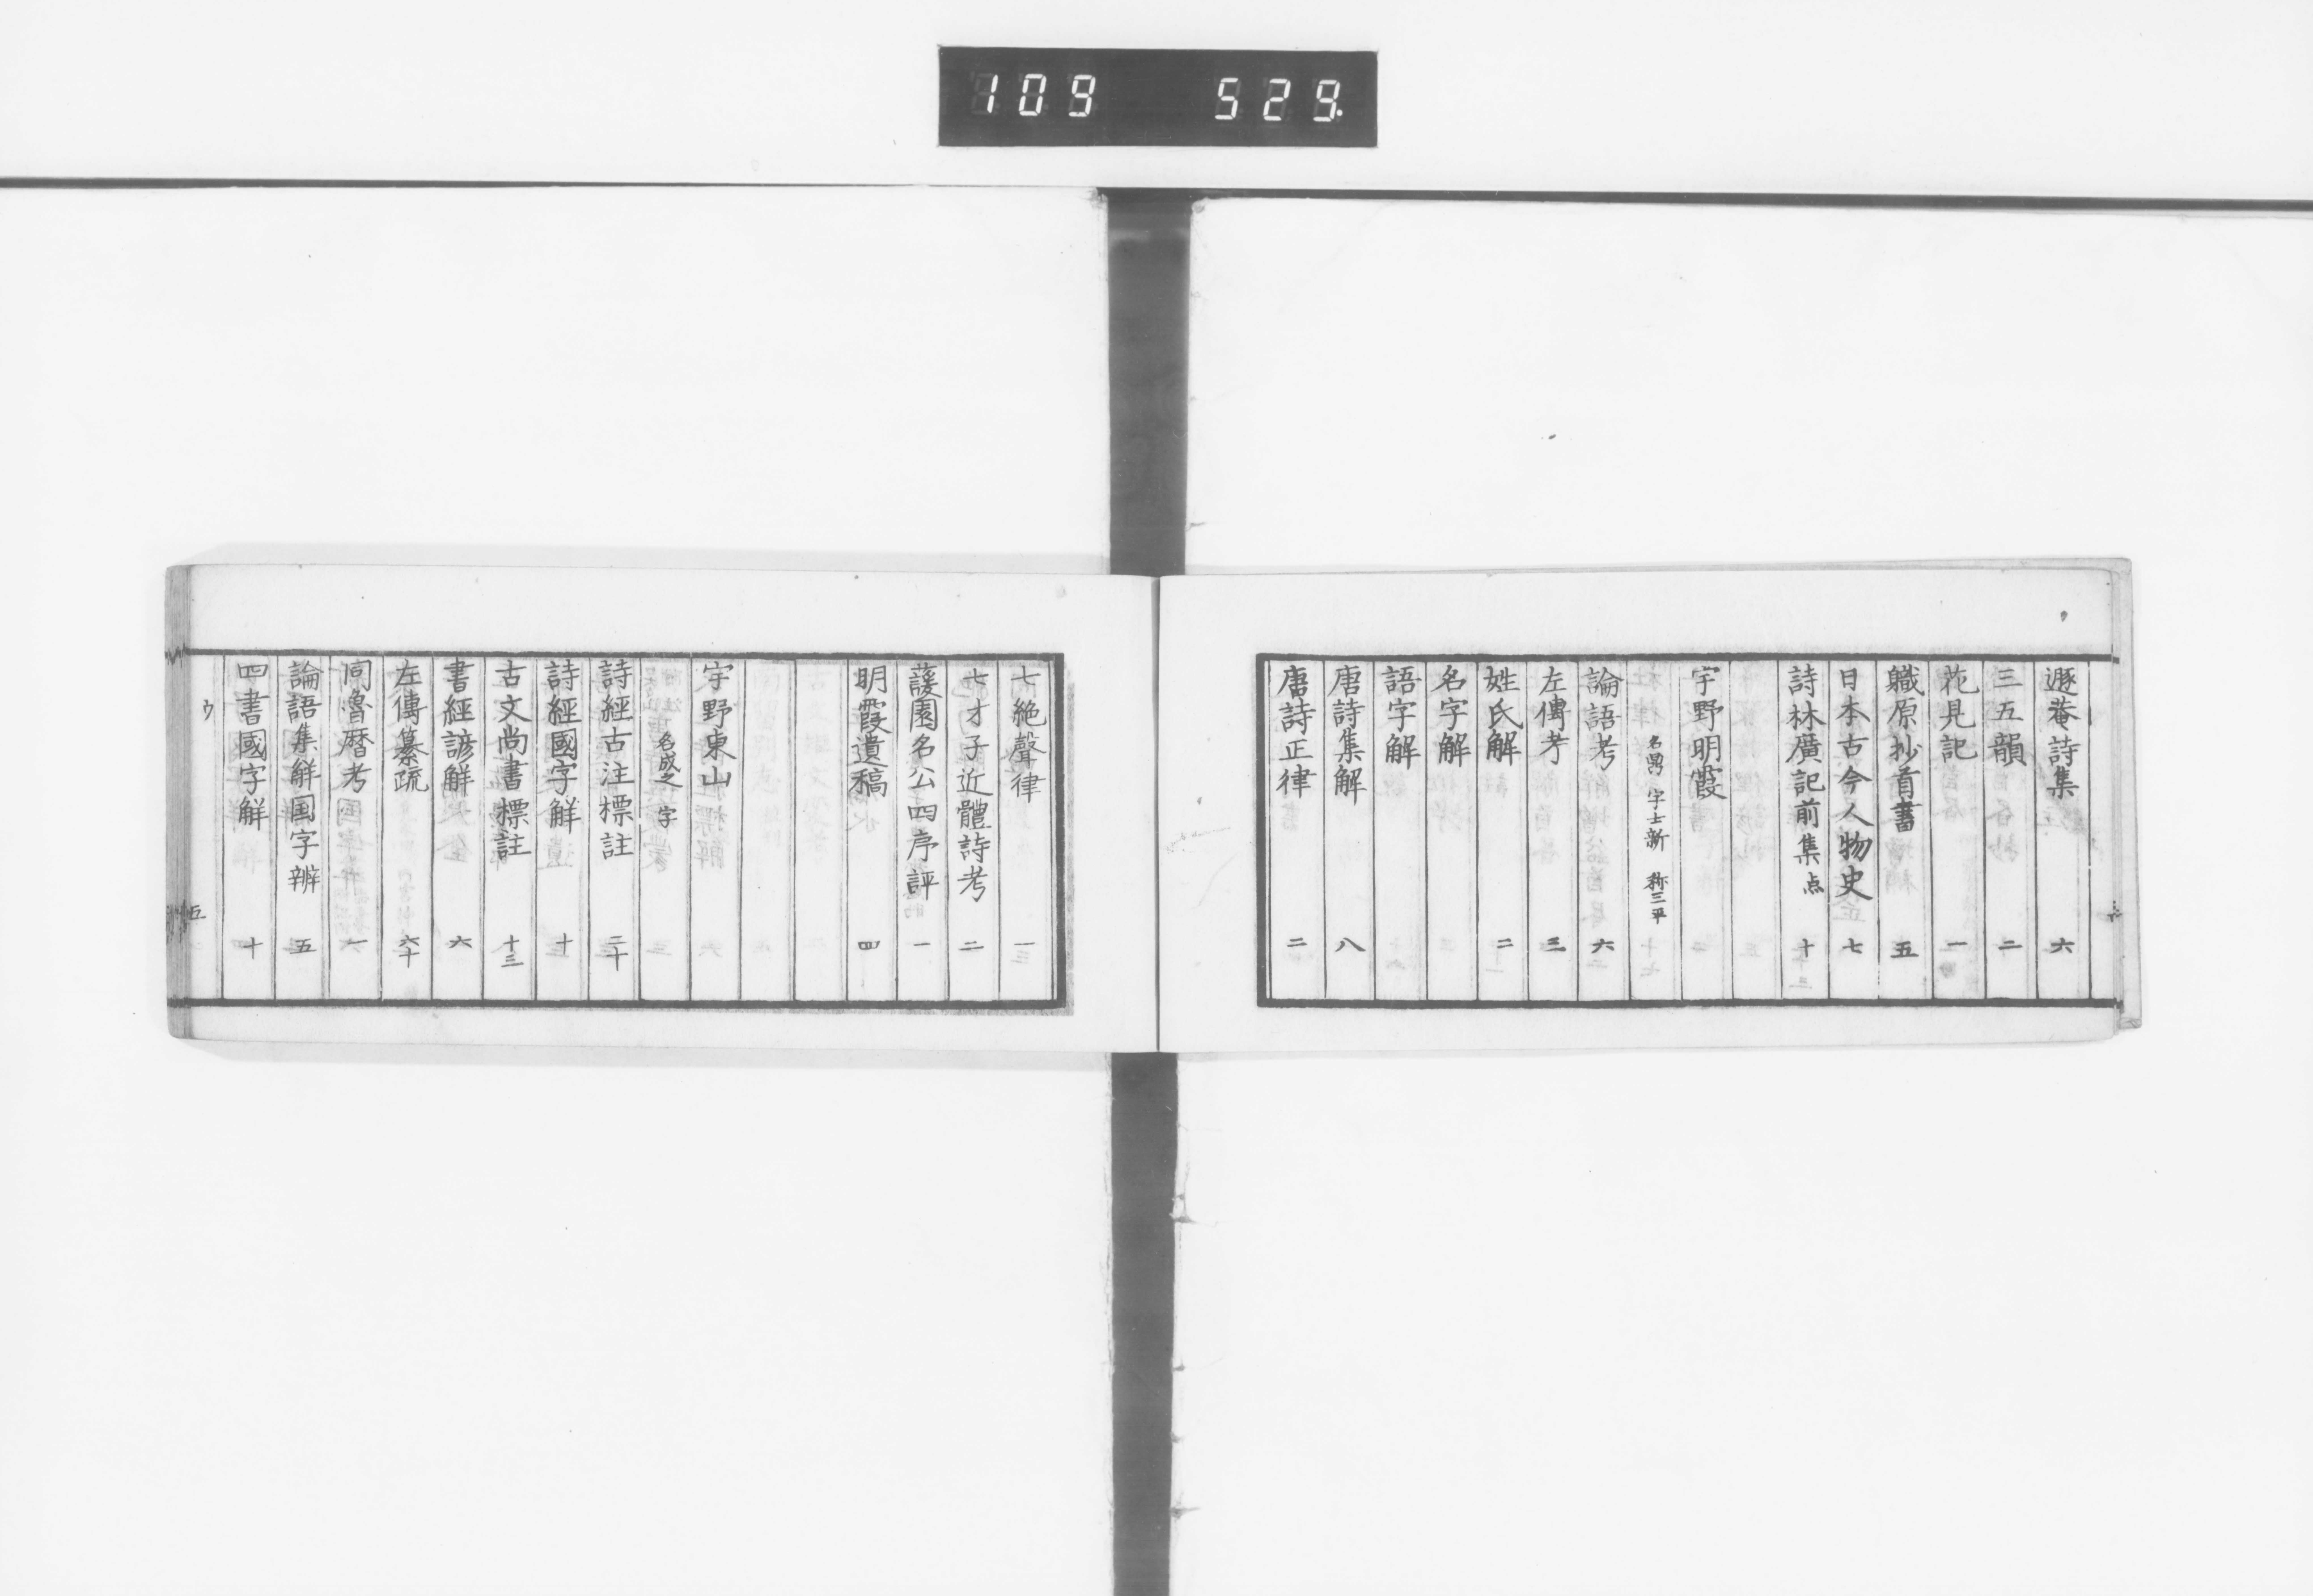 109 529.
遯菴詩集 六
三五韻 二
花見記 一
職原抄首書 五
日本古今人物史 七
詩林廣記前集点 十
宇野明霞
名鼎 字士新 称三平
論語考 六
左傳考 三
姓氏解 二
名字解
語字解
唐詩集解 八
唐詩正律 二
七絶聲律 一
七才子近體詩考 二
蘐園名公四序評 一
明霞遺稿 四
宇野東山
名成之 字
詩經古注標註 二十
詩經國字解 十
古文尚書標註 十三
書經諺解 六
左傳纂疏 六十
同魯暦考 一
論語集解国字辨 五
四書國字解 十
ウ
五